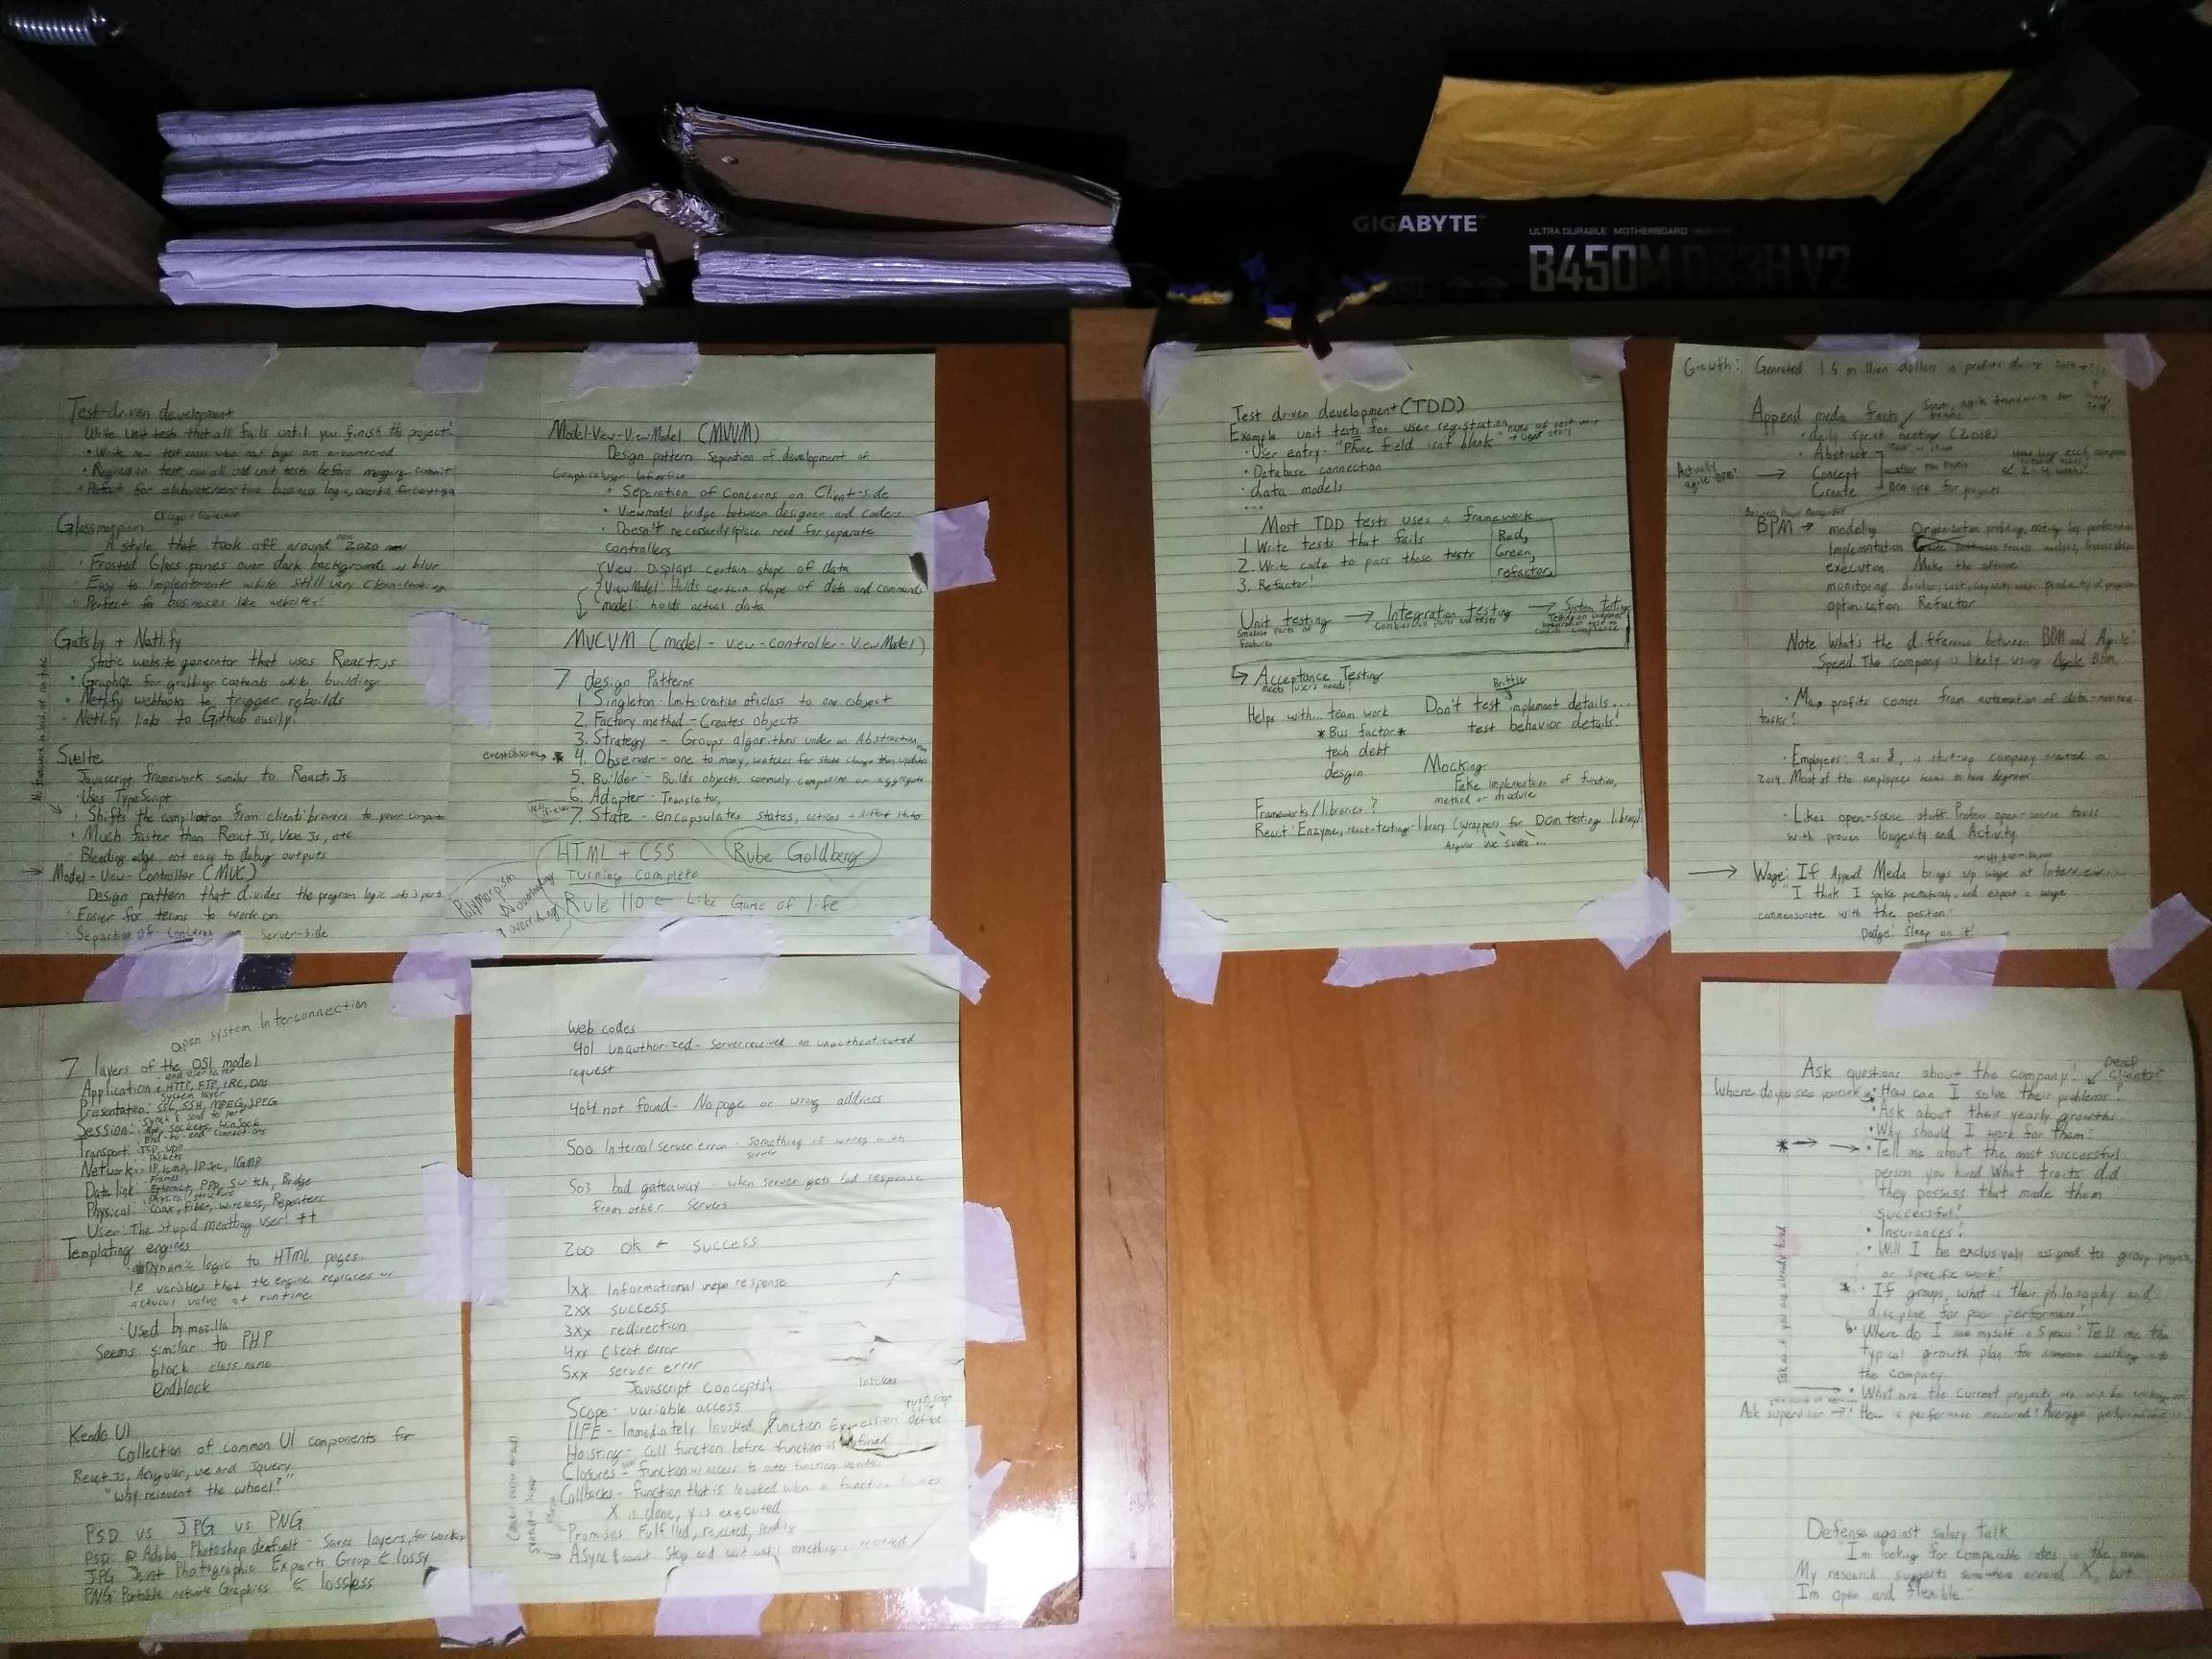 GIGABYTE
ULTRA DURABLE MOTHERBOARD
B450M DS3H V2
Test-driven development
Write unit tests that all fails until you finish the project!
• Write new test cases when new bugs are encountered
• Regression test run all old unit tests before merging commit
• Perfect for elaborate business logic,
Glassmorpism
A style that took off around 2020
• Frosted Glass panes over dark backgrounds w/ blur
Easy to implentment while still very clean-looking
• Perfect for businesses like websites!
Gatsby + Netlify
Static website generator that uses React.js
• Graphql for grabbing contents while building
• Netlify webhooks to trigger rebuilds
• Netlify links to Github easily!
Svelte
Javascript framework similar to React Js
• Uses TypeScript
• Shifts the compilation from client/browers to your
• Much faster than React Js, Vue Js, etc
Bleeding edge, not easy to debug outputs
Model-View-Controller (MVC)
Design pattern that divides the program logic into 3 part
• Easier for teams to work on
Separtion of Concerns on Server-side
Model-View-ViewModel (MVVM)
Design pattern Separation of development of
Graphical User Interface
• Separation of Concerns on Client-side
• Viewmodel bridge between designer and coders
• Doesn't necessarily place need for separate
controllers
View: Displays certain shape of data
ViewModel: Holds certain shape of data and commands
model: holds actual data
MVCVM (model-view-controller-ViewModel)
7 design Patterns
1 Singleton-limits creation of class to one object
2. Factory method-Creates objects
3. Strategy - Groups algorithms under an Abstraction
4. Observer - one to many, watches for state change then updates
5. Builder - Builds objects, commonly composite or aggregate
6. Adapter - Translator,
7. State - encapsulates states,
HTML + CSS
Turning Complete
Rube Goldberg
Polymorpism
overloading
overriding
Rule 110 ← Like Game of life
Test driven development (TDD)
Example unit tests for user registration
• User entry- "Phone field isn't blank"
• Database connection
• data models
...
Most TDD tests uses a framework
1. Write tests that fails
2. Write code to pass those tests
3. Refactor!
Red,
Green,
refactor
Unit testing → Integration testing → System testing
Smallest parts of
features
Combines all parts and tests
Acceptance Testing
meets users needs!
Helps with... team work
* Bus factor *
tech debt
desgin
Brittle
Don't test implement details...
test behavior details!
Mocking
Fake implementation of function,
method or module
Frameworks/libraries?
React: Enzyme, react-testing-library (wrappers for Dom testing library)
Growth: Generated 1.5 million dollars in profits
Append media facts
• daily sprint meeting (2018)
• Abstract
Concept
Create
Actually
agile BPM?
BPM → modeling
Implementation
execution
monitoring
optimization Refactor
Note What's the difference between BPM and Agile?
Speed. The company is likely using Agile BPM.
• Many profits comes from automation of
tasks?
• Employees: 9 as of, is start-up company created in
2014. Most of the employees seems to have degrees.
• Likes open-source stuff. Prefers open-source tools
with proven longevity and Activity.
→ Wage: If Append Media brings up wage at Interview
"I think I spoke prematurely, and expect a wage
commensurate with the position."
Dodge: Sleep on it!
Open system Interconnection
7 layers of the OSI model
end user layer
Application: HTTP, FTP, IRC, DNS
system layer
Presentation: SSL, SSH, MPEG, JPEG
Synch & send to port
Session: Api, Sockets, WinSock
End-to-end Connections
Transport: TCP, UDP
Packets
Network: IP, Icmp, IPsec, IGMP
Frames
Data link: Ethernet, PPP, Switch, Bridge
Physical structure
Physical: Coax, Fiber, wireless, Repeaters
User: The Stupid meatbag user!
Templating engines
Dynamic logic to HTML pages.
I.e variables that the engine replaces w/
actucal value at runtime
• Used by mozilla
Seems similar to PHP
block class name
Endblock
Kendo UI
Collection of common UI components for
React Js, Angular, vue and Jquery
"why reinvent the wheel?"
PSD vs JPG vs PNG
PSD Adobe Photoshop default - Saves layers, for
JPG Joint Photographic Experts Group ← lossy
PNG Portable network Graphics ← lossless
Web codes
401 unauthorized- Server received an unauthenticated
request
404 not found- No page or wrong address
500 Internal server error - something is wrong with
server
503 bad gateaway - when server gets bad response
from other servers
200 OK ← Success
1xx Informational response
2xx success
3xx redirection
4xx Client error
5xx server error
Javascript Concepts!
Scope- variable access
IIFE- Immediately Invoked Function Expression
Hoisting- call function before function is defined
Closures - function w/ access to outer function
Callbacks- function that is invoked when a function
X is done, y is executed
Promises Fulfilled, rejected, pending
Async & await Stop and wait until something is resolved
Ask questions about the company!
Where do you see yourself
• How can I solve their problems?
• Ask about their yearly growths
• Why should I work for them?
• Tell me about the most successful
person you hired What traits did
they possess that made them
successful?
• Insurances?
• Will I be exclusively assigned to group projects
or specific work?
* • If groups, what is their philosophy and
discipline for poor performers?
Where do I see myself in 5 years? Tell me the
typical growth plan for someone walking into
the company
• What are the current projects
Ask supervisor → • How is performance measured? Average
Talk as if you are already hired
Defense against salary talk
"I'm looking for comparable rates in the area
My research suggests somewhere around X, but
I'm open and flexible"